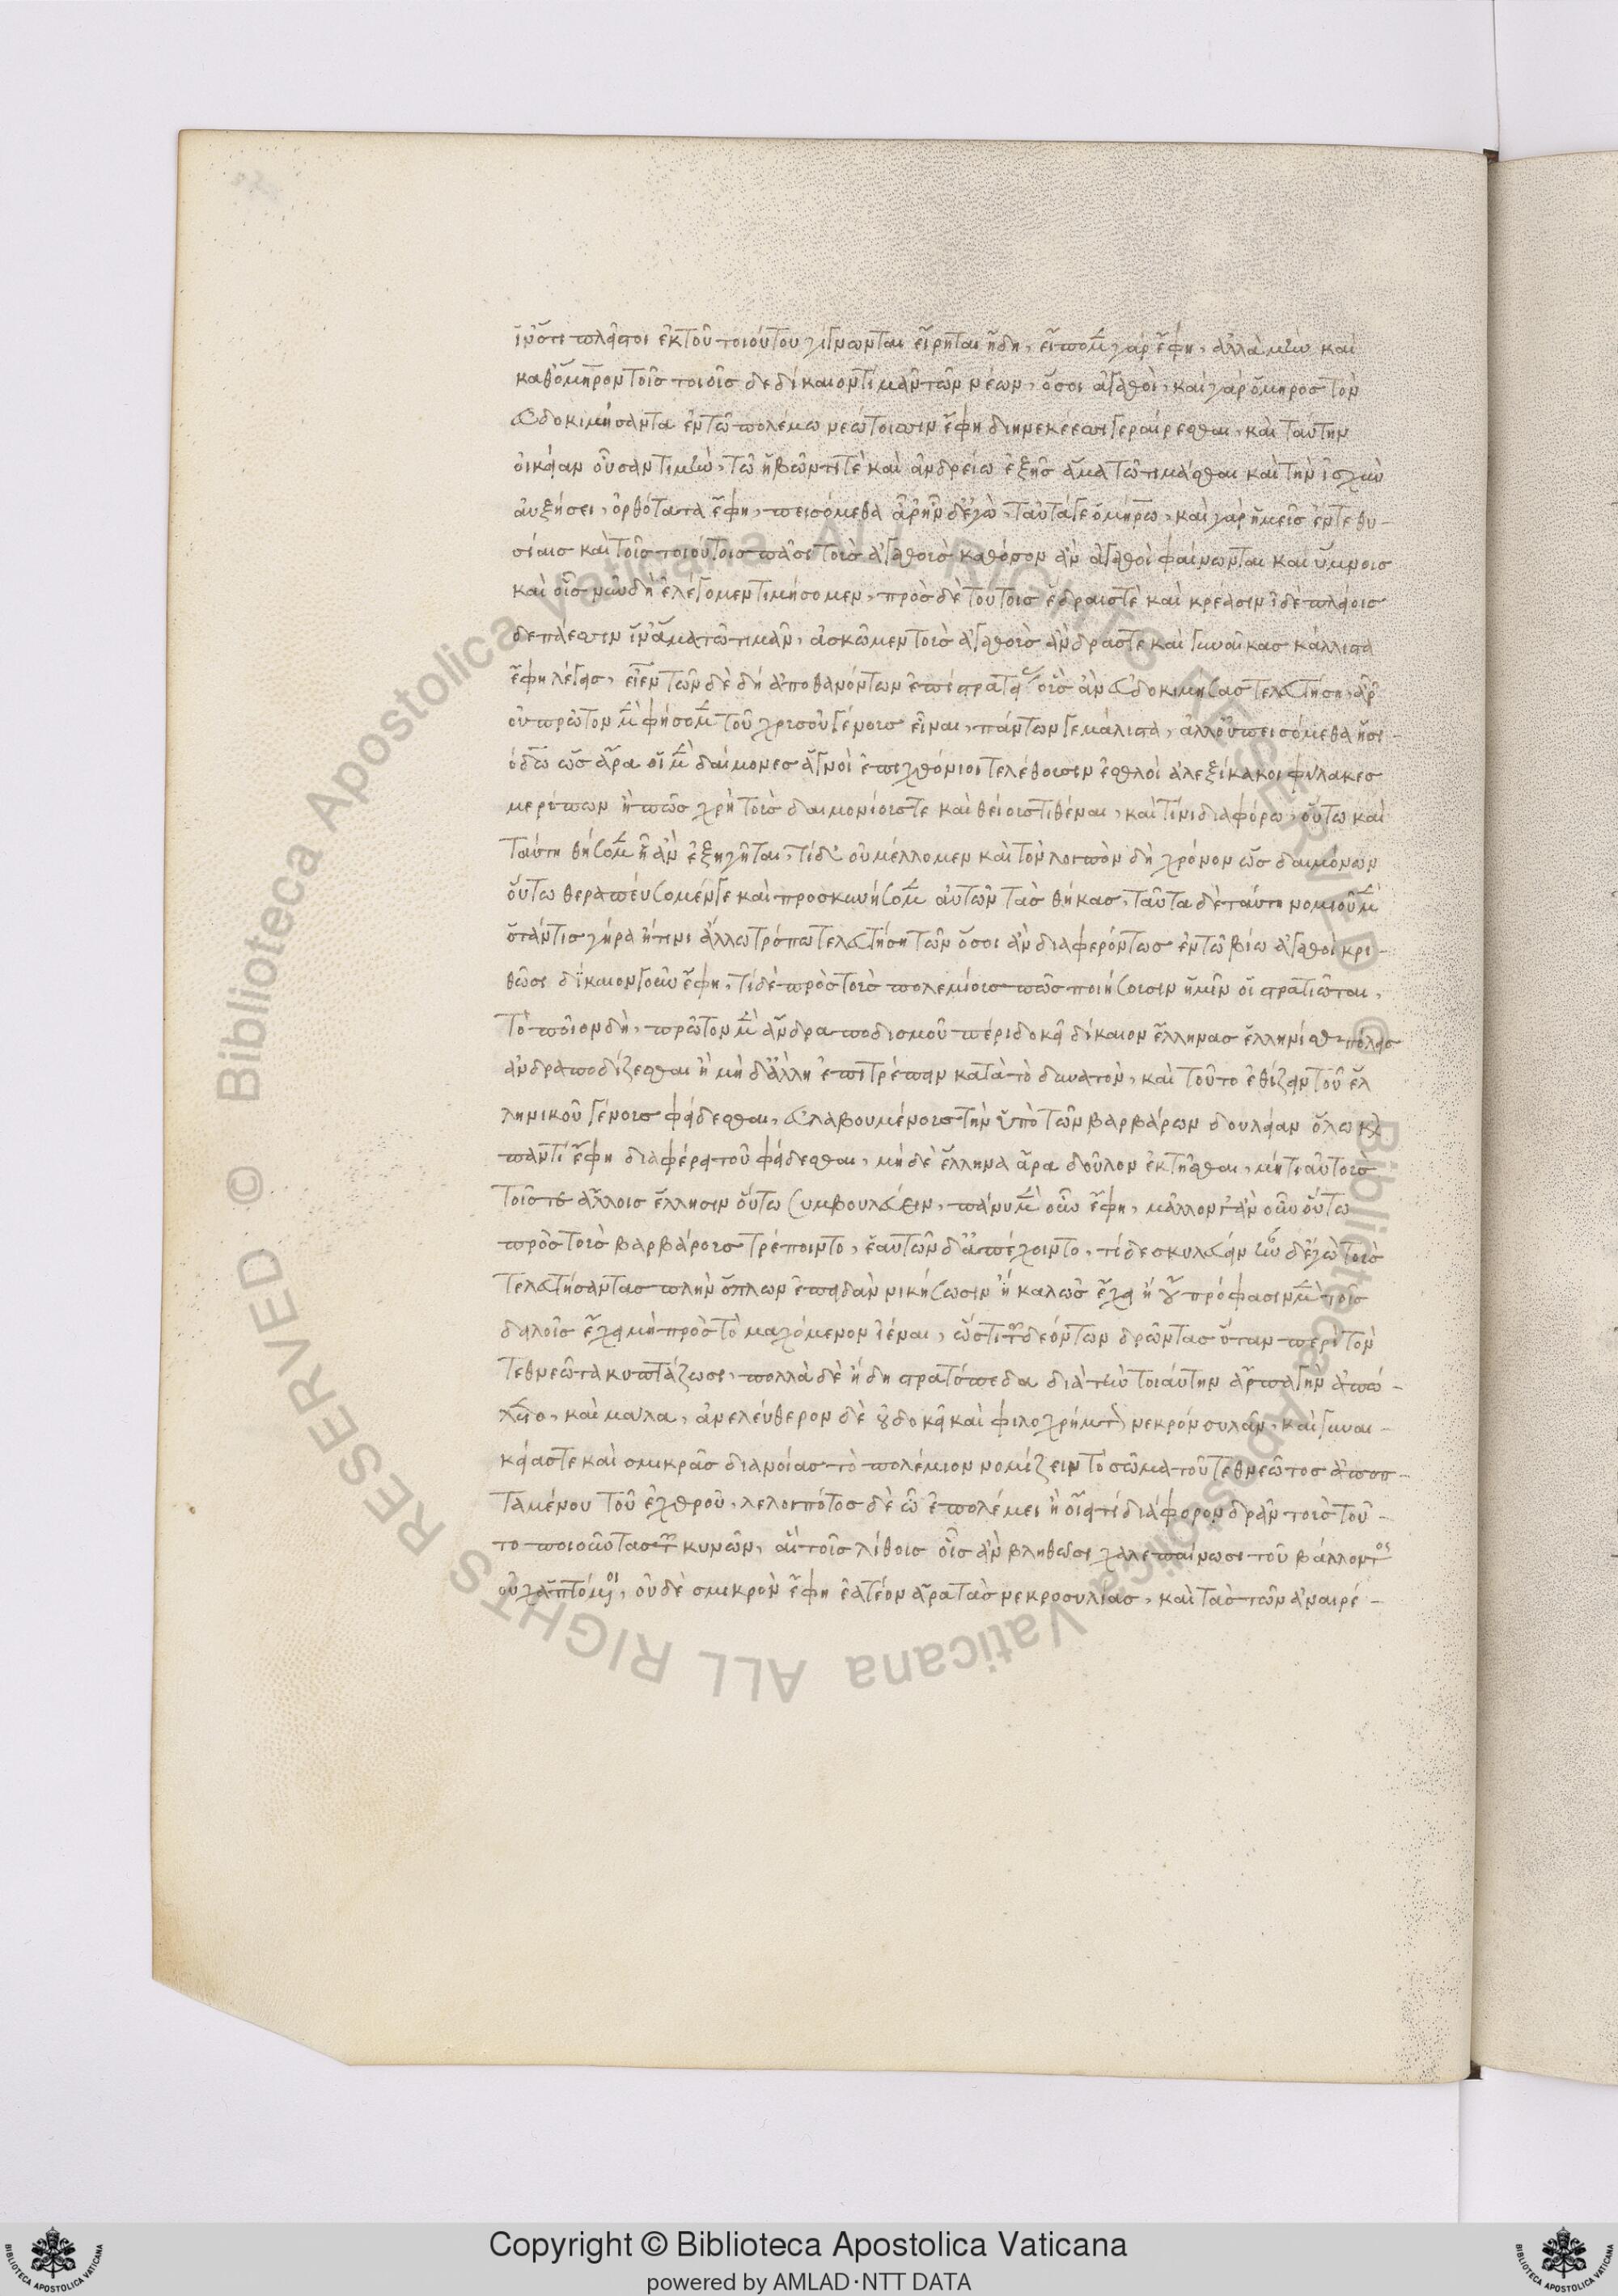 ἵν᾽ ὅτι πλεῖστοι ἐκ τοῦ τοιούτου γίγνωνται εἴρηται ἤδη, εἴπομεν γάρ ἔφη, ἀλλὰ μὴν καὶ
καθ᾽ ὅμηρον τοῖς τοιοῖσδε δίκαιον τιμᾶν τῶν νέων, ὅσοι ἀγαθοί, καὶ γὰρ ὅμηρος τὸν
εὐδοκιμήσαντα ἐν τῶ πολέμω νώτοισιν ἔφη διηνεκέεσσι γεραίρεσθαι, καὶ ταύτην
οἰκείαν οὖσαν τιμὴν, τῶ ἡβῶντί τε καὶ ἀνδρείω ἐξ ἧς ἅμα τῶ τιμᾶσθαι καὶ τὴν ἰσχὺν
αὐξήσει, ὀρθότατα ἔφη, πεισόμεθα ἄρ᾽ ἦν δ᾽ ἐγὼ, ταῦτά γε ὁμήρω, καὶ γὰρ ἡμεῖς ἔν τε θυ-
σίαις καὶ τοῖς τοιούτοις πᾶσι τοὺς ἀγαθοὺς καθόσον ἂν ἀγαθοὶ φαίνωνται καὶ ὕμνοις
καὶ οἷς νῦν δὴ ἐλέγομεν τιμήσομεν, πρὸς δὲ τούτοις ἕδραις τὲ καὶ κρέασιν ἰδὲ πλείοις
δεπάεσσιν ἵν᾽ ἅμα τῶ τιμᾶν, ἀσκῶμεν τοὺς ἀγαθοὺς ἄνδρας τε καὶ γυναῖκας κάλλιστα
ἔφη λέγεις, εἶεν τῶν δὲ δὴ ἀποθανόντων ἐπὶ στρατείας οὓς ἂν εὐδοκιμήσας τελευτήση, ἆρ᾽
οὐ πρῶτον μὲν φήσομεν τοῦ χρυσοῦ γένους εἶναι, πάντων γε μάλιστα, ἀλλ᾽ οὐ πεισόμεθα ἡσι-
όδω ὡς ἄρα οἱ μὲν δαίμονες ἁγνοὶ ἐπιχθόνιοι τελέθουσιν ἐσθλοὶ ἀλεξίκακοι φύλακες
μερόπων ἢ πῶς χρὴ τοὺς δαιμονίους τε καὶ θείους τιθέναι, καὶ τίνι διαφόρω, οὕτω καὶ
ταύτη θήσομεν ἧ ἂν ἐξηγῆται, τί δ᾽ οὐ μέλλομεν καὶ τὸν λοιπὸν δὴ χρόνον ὡς δαιμόνων
οὕτω θεραπεύσομέν γε καὶ προσκυνήσομεν αὐτῶν τὰς θήκας, ταῦτα δὲ ταύτη νομιοῦμεν
ὅταν τις γήρα ἤ τινι ἄλλω τρόπω τελευτήση τῶν ὅσοι ἂν διαφερόντως ἐν τῶ βίω ἀγαθοὶ κρι-
θῶσι δίκαιον γοῦν ἔφη, τί δὲ πρὸς τοὺς πολεμίους πῶς ποιήσουσιν ἡμῖν οἱ στρατιῶται,
τὸ ποῖον δὴ, πρῶτον μὲν ἀνδραποδισμοῦ πέρι δοκεῖ δίκαιον ἕλληνας ἑλληνίδας πόλεις
ἀνδραποδίζεσθαι ἢ μὴ δ᾽ ἄλλη ἐπιτρέπειν κατὰ τὸ δυνατὸν, καὶ τοῦτο ἐθίζειν τοῦ ἑλ
ληνικοῦ γένους φείδεσθαι, εὐλαβουμένους τὴν ὑπὸ τῶν βαρβάρων δουλείαν ὅλω καὶ
παντί ἔφη διαφέρει τοῦ φείδεσθαι, μὴ δὲ ἕλληνα ἄρα δοῦλον ἐκτῆσθαι, μήτ᾽ αὐτοὺς
τοῖς τὲ ἄλλοις ἕλλησιν οὕτω συμβουλεύειν, πάνυ μὲν οὖν ἔφη, μᾶλλον γ᾽ ἂν οὖν οὕτω
πρὸς τοὺς βαρβάρους τρέποιντο, ἑαυτῶν δ᾽ ἀπέχοιντο, τί δὲ σκυλεύειν ἦν δ᾽ ἐγὼ τοὺς
τελευτήσαντας πλὴν ὅπλων ἐπειδὰν νικήσωσιν ἦ καλῶς ἔχει ἢ οὐ πρόφασιν μὲν τοῖς
δειλοῖς ἔχει μὴ πρὸς τὸ μαχόμενον ἰέναι, ὥς τι τῶν δεόντων δρῶντας ὅταν περὶ τὸν
τεθνεῶτα κυπτάζωσι, πολλὰ δὲ ἤδη στρατόπεδα διὰ τὴν τοιαύτην ἁρπαγὴν ἀπώ-
λετο, καὶ μάλα, ἀνελεύθερον δὲ οὐ δοκεῖ καὶ φιλοχρήματον νεκρόν συλᾶν, καὶ γυναι-
κείας τε καὶ σμικρᾶς διανοίας τὸ πολέμιον νομίζειν τὸ σῶμα τοῦ τεθνεῶτος ἀποπ-
ταμένου τοῦ ἐχθροῦ, λελοιπότος δὲ ὧ ἐπολέμει ἢ οἴει τί διάφορον δρᾶν τοὺς τοῦ-
το ποιοῦντας τῶν κυνῶν, αἳ τοῖς λίθοις οἷς ἂν βληθῶσι χαλεπαίνουσι τοῦ βάλλοντος
οὐχ ἁπτόμεναι, οὐδὲ σμικρὸν ἔφη ἐατέον ἄρα τὰς νεκροσυλίας, καὶ τὰς τῶν ἀναιρέ-
Copyright © Biblioteca Apostolica Vaticana
powered by AMLAD·NTT DATA